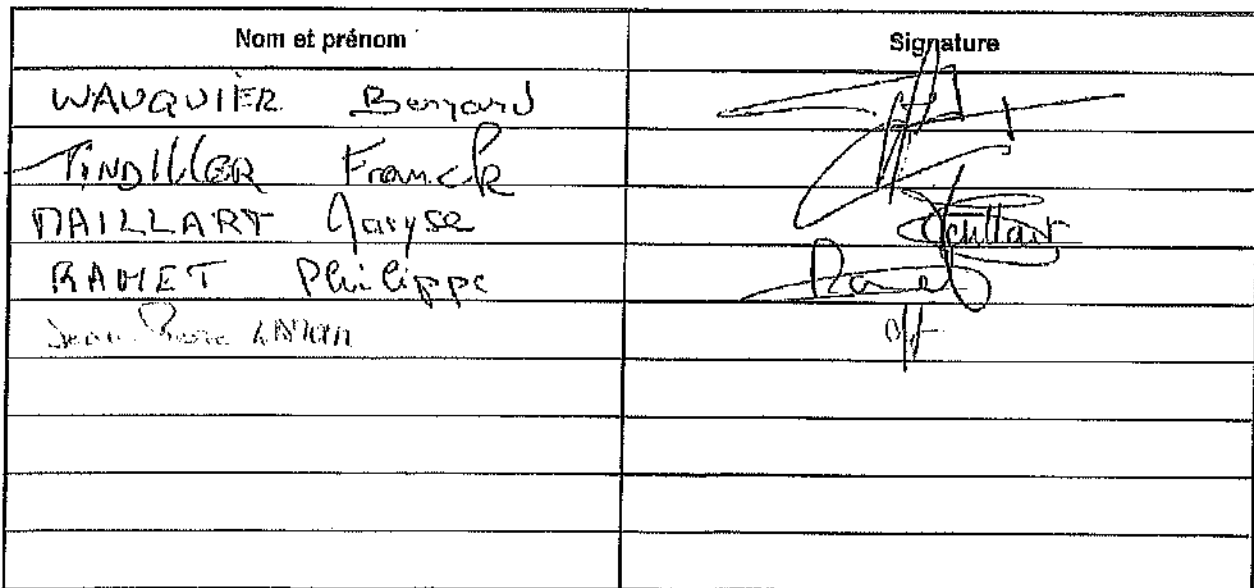 Nom et prénom Signature
WAUQUIER Bernard
TINDILLER Franck
MAILLART Maryse Maillart
RAMET Philippe Ramet
Jean Pierre